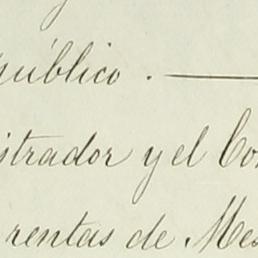 público. —
istrador y el Con
rentas de Mes